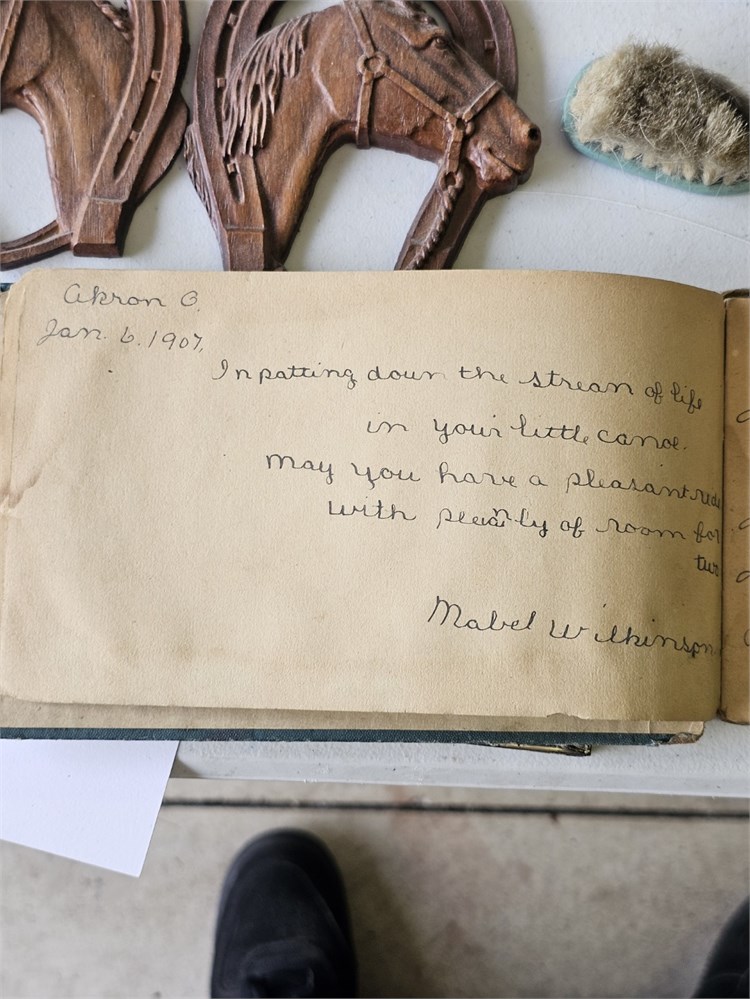 Akron O.
Jan. 6. 1907,
In patting down the stream of life
in your little canoe.
May you have a pleasant
with plenty of room for
Mabel Wilkinson